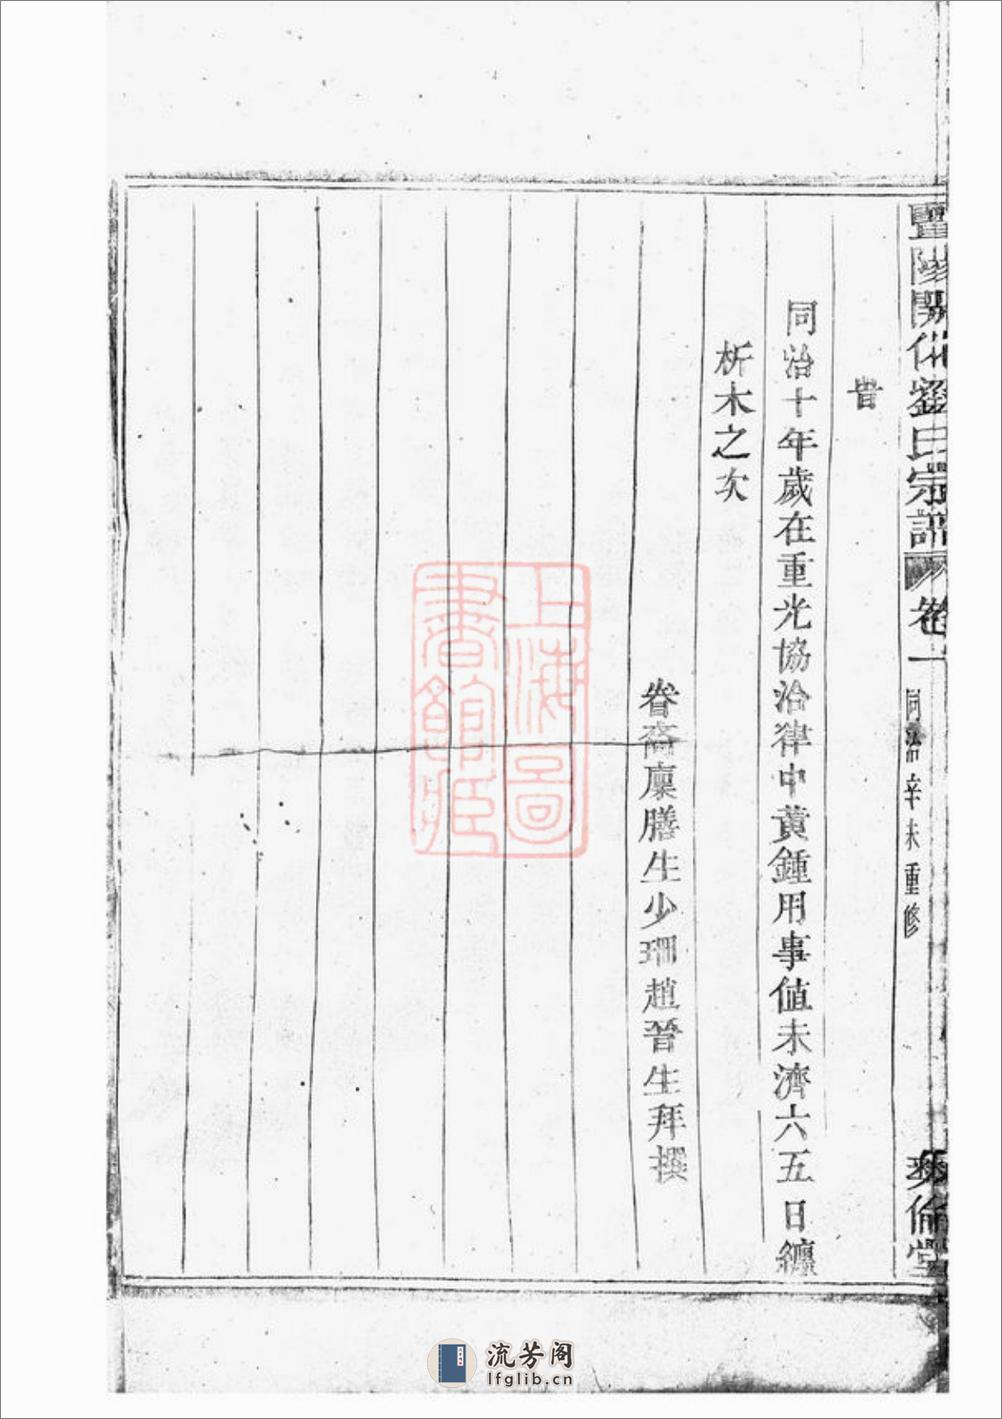 旹
同治十年歲在重光協洽律中黃鍾用事值未濟六五日纏
析木之次
眷裔廩膳生少珊趙晉生拜撰
劉氏宗譜 卷一 同治辛未重修 彝倫堂
上海圖
書館藏
流芳阁
lfglib.cn